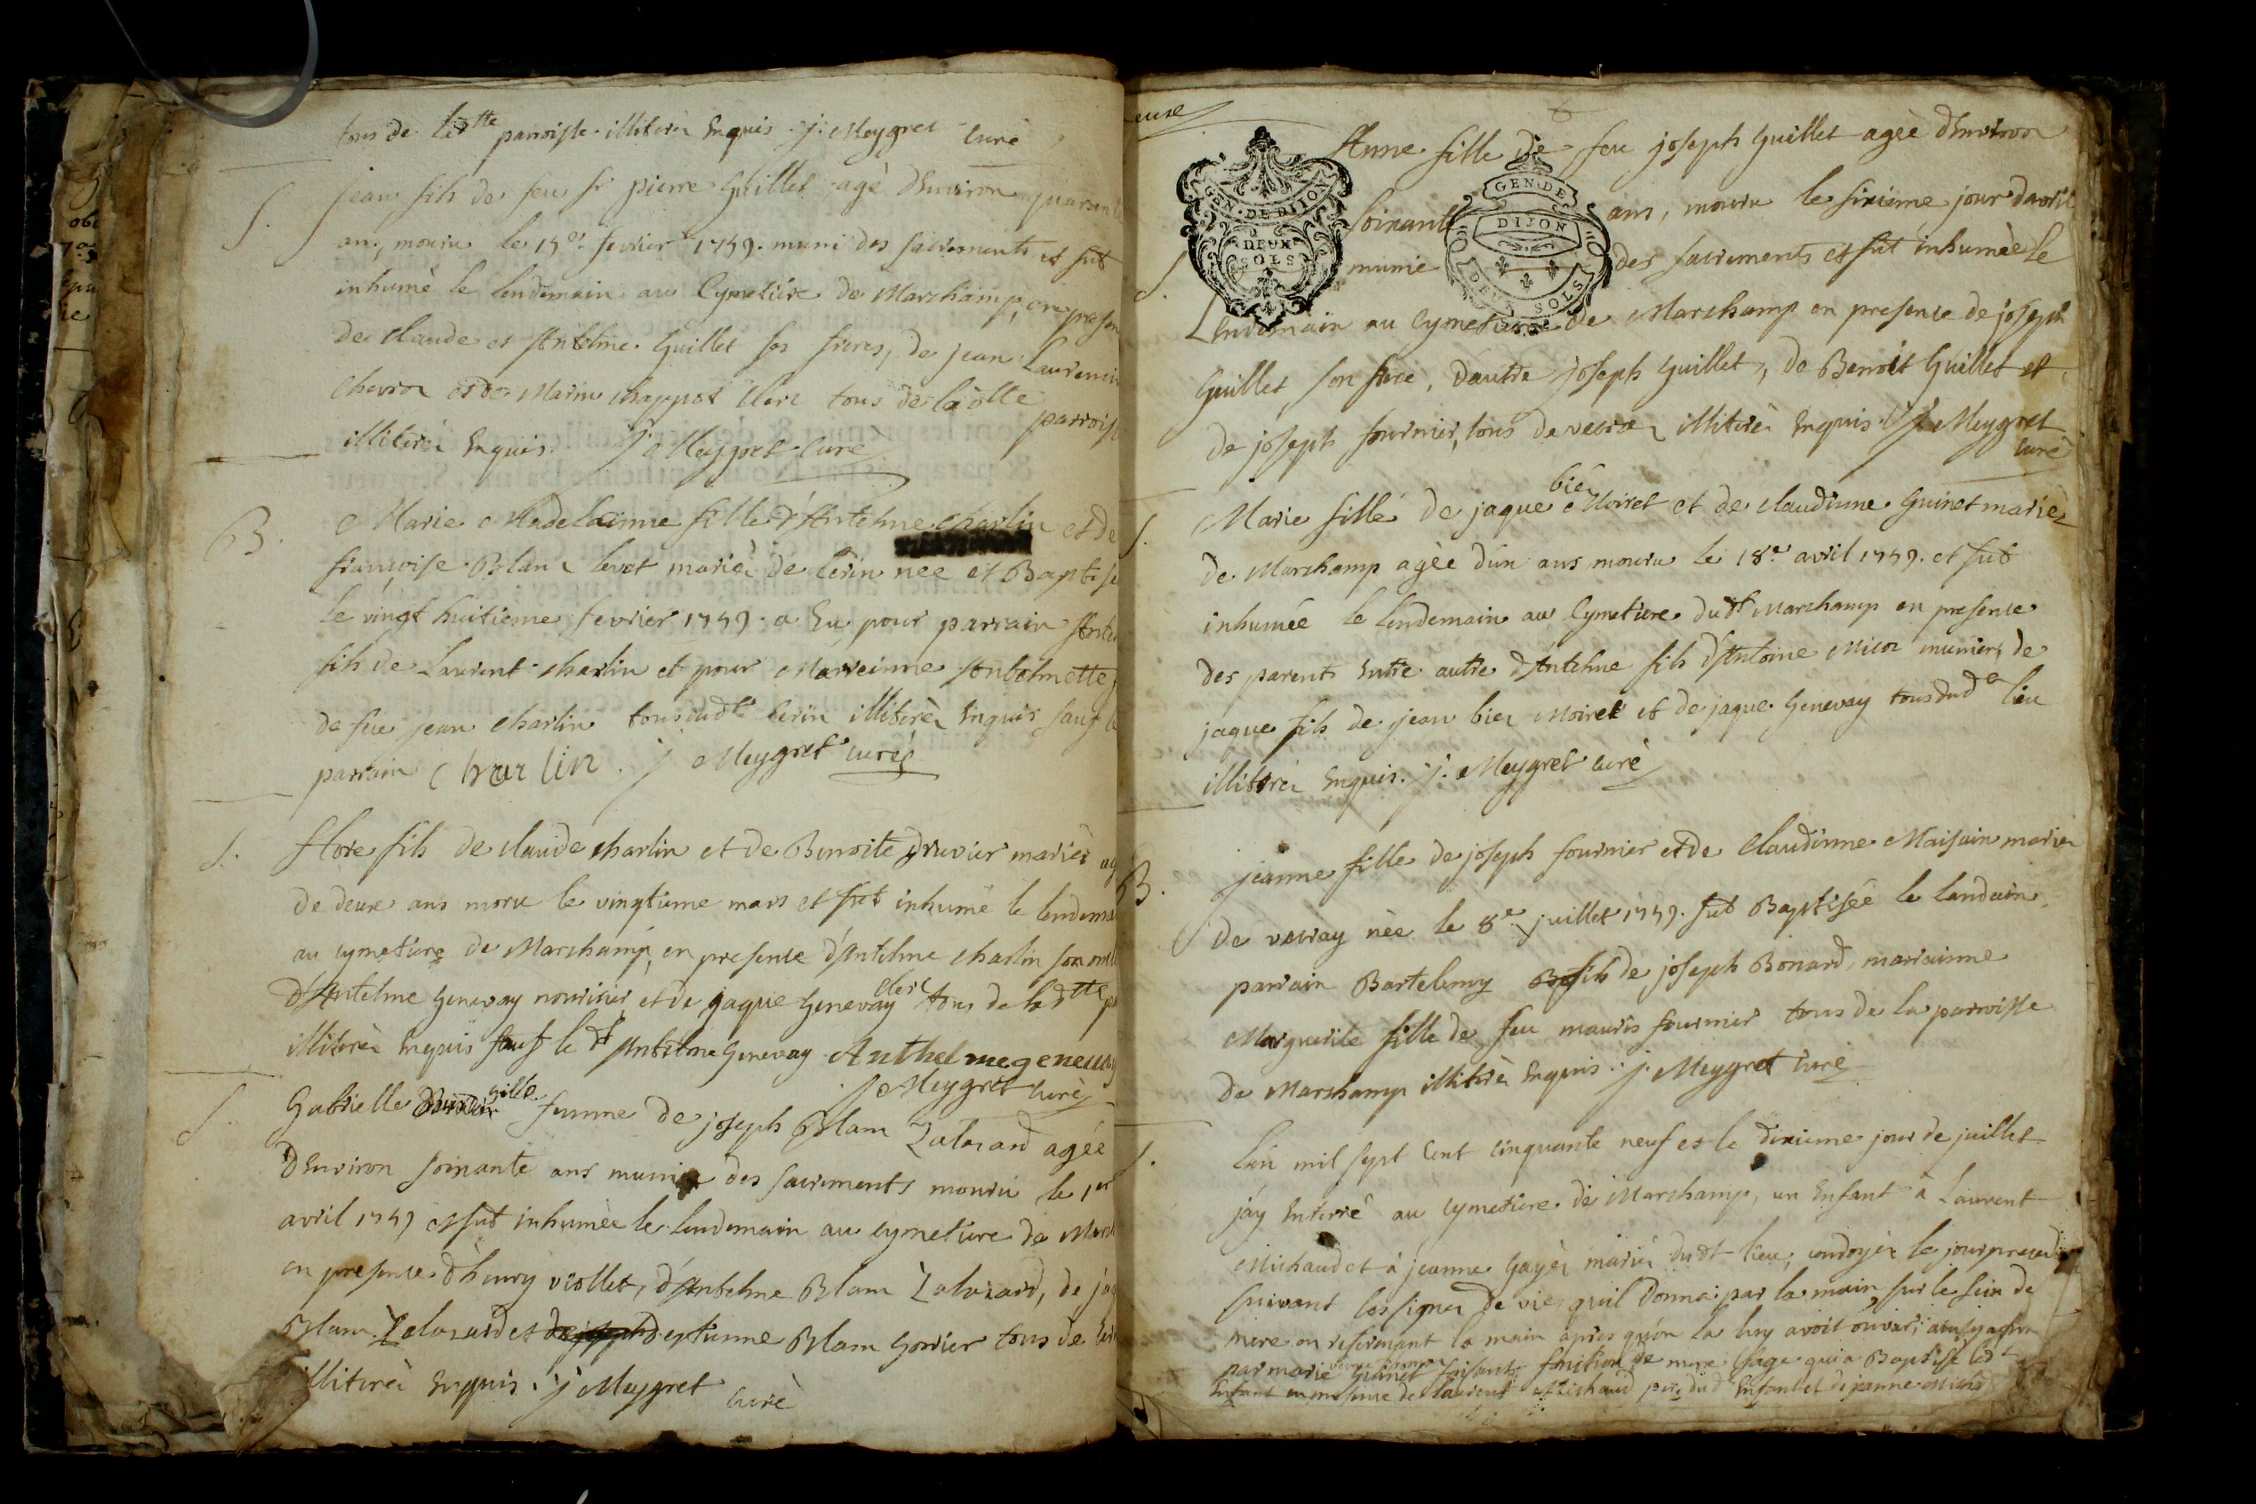 tous de ledtte parroisse illiterés Enquis. j. Meygret Curé
S. jean fils de feu sr pierre Guillet agé d'Environ quarante
an, mouru le 15e. fevrier 1759. muni des sacrements et fut
inhumé le lendemain au Cymetiere de Marchamp, en presen
de claude et Antelme Guillet ses freres, de jean Laurent
Chevron et de Marin chappot Clerc tous de la dtte parroiss
illiterés Enquis. j. Meygret Curé
B. Marie Madelainne fille d'Antelme charlin et de
françoise Blanc levet mariés de Cerin née et Baptisé
le vingt huitieme fevrier 1759. a Eu pour parrain Ante
fils de Laurent charlin et pour Marreinne Antelmette
de feu jean charlin tous dudt Cerin illiterés Enquis sauf le
parrain Charlin. j Meygret curé
S. flore fils de claude charlin et de Benoite Druvier mariés ag
de deux ans moru le vingtieme mars et fut inhumé le lendema
au cymetiere de Marchamp, en presence d'Antelme charlin son
d'Antelme Genevay nourisier et de jaque Genevay clerc tous de la dtte p
illiterés Enquis sauf le dt Antelme Genevay Anthelme genevay
j Meygret curé
S. Gabrielle femme de joseph Blanc Lalosard agée
d'Environ soixante ans munie des sacrements mouru le 1er
avril 1759 et fut inhumée le lendemain au cymetiere de March
en presence d'henry viollet, d'Antelme Blanc Lalosard, de ja
Blanc Lalosard et de joseph d'eytienne Blanc Gorrier tous de
illiterés Enquis. j Meygret curé
euse
Anne fille de feu joseph Guillet agée d'Environ
S. soixante ans, mouru le sixieme jour d'avril
munie des sacrements et fut inhumée le
Lendemain au Cymetiere de Marchamp en presence de joseph
Guillet son frere, d'autre joseph Guillet, de Benoit Guillet et
de joseph fournier, tous de illiterés Enquis. j. Meygret
curé
GEN. DE DIJON
DEUX
SOLS
GEN. DE
DIJON
DEUX SOLS
S. Marie fille de jaque bier Moiret et de claudinne Guinet mariés
de Marchamp agée d'un ans mouru le 18e avril 1759. et fut
inhumée le lendemain au Cymetiere dudt Marchamp en presence
des parents Entre autre d'Antelme fils d'Antoine Micoz munier, de
jaque fils de jean bier Moiret et de jaque Genevay tous dud lieu
illiterés Enquis. j. Meygret curé
B. jeanne fille de joseph fournier et de Claudinne Maisain mariés
de née le 8e juillet 1759. fut Baptisée le landmain
parrain Bartelemy fils de joseph Bonard, marrainne
Marguerite fille de feu mauris fournier tous de la parroisse
de Marchamp illiterés Enquis. j. Meygret curé
S. L'an mil sept cent cinquante neuf et le dixieme jour de juillet
j'ay Enterré au cymetiere de Marchamp, un Enfant à Laurent
Michaud et à jeanne Gayer mariés dudt lieu, ondoyés le jour preced
suivant les signes de vie quil donna par la main sur le sein de
mere en resserrant la main apres qu'on la luy avoit
par marie Guinet faisant fonction de mere sage qui a Baptisé led
Enfant en presence de laurent Michaud pere dud Enfant et de jeanne